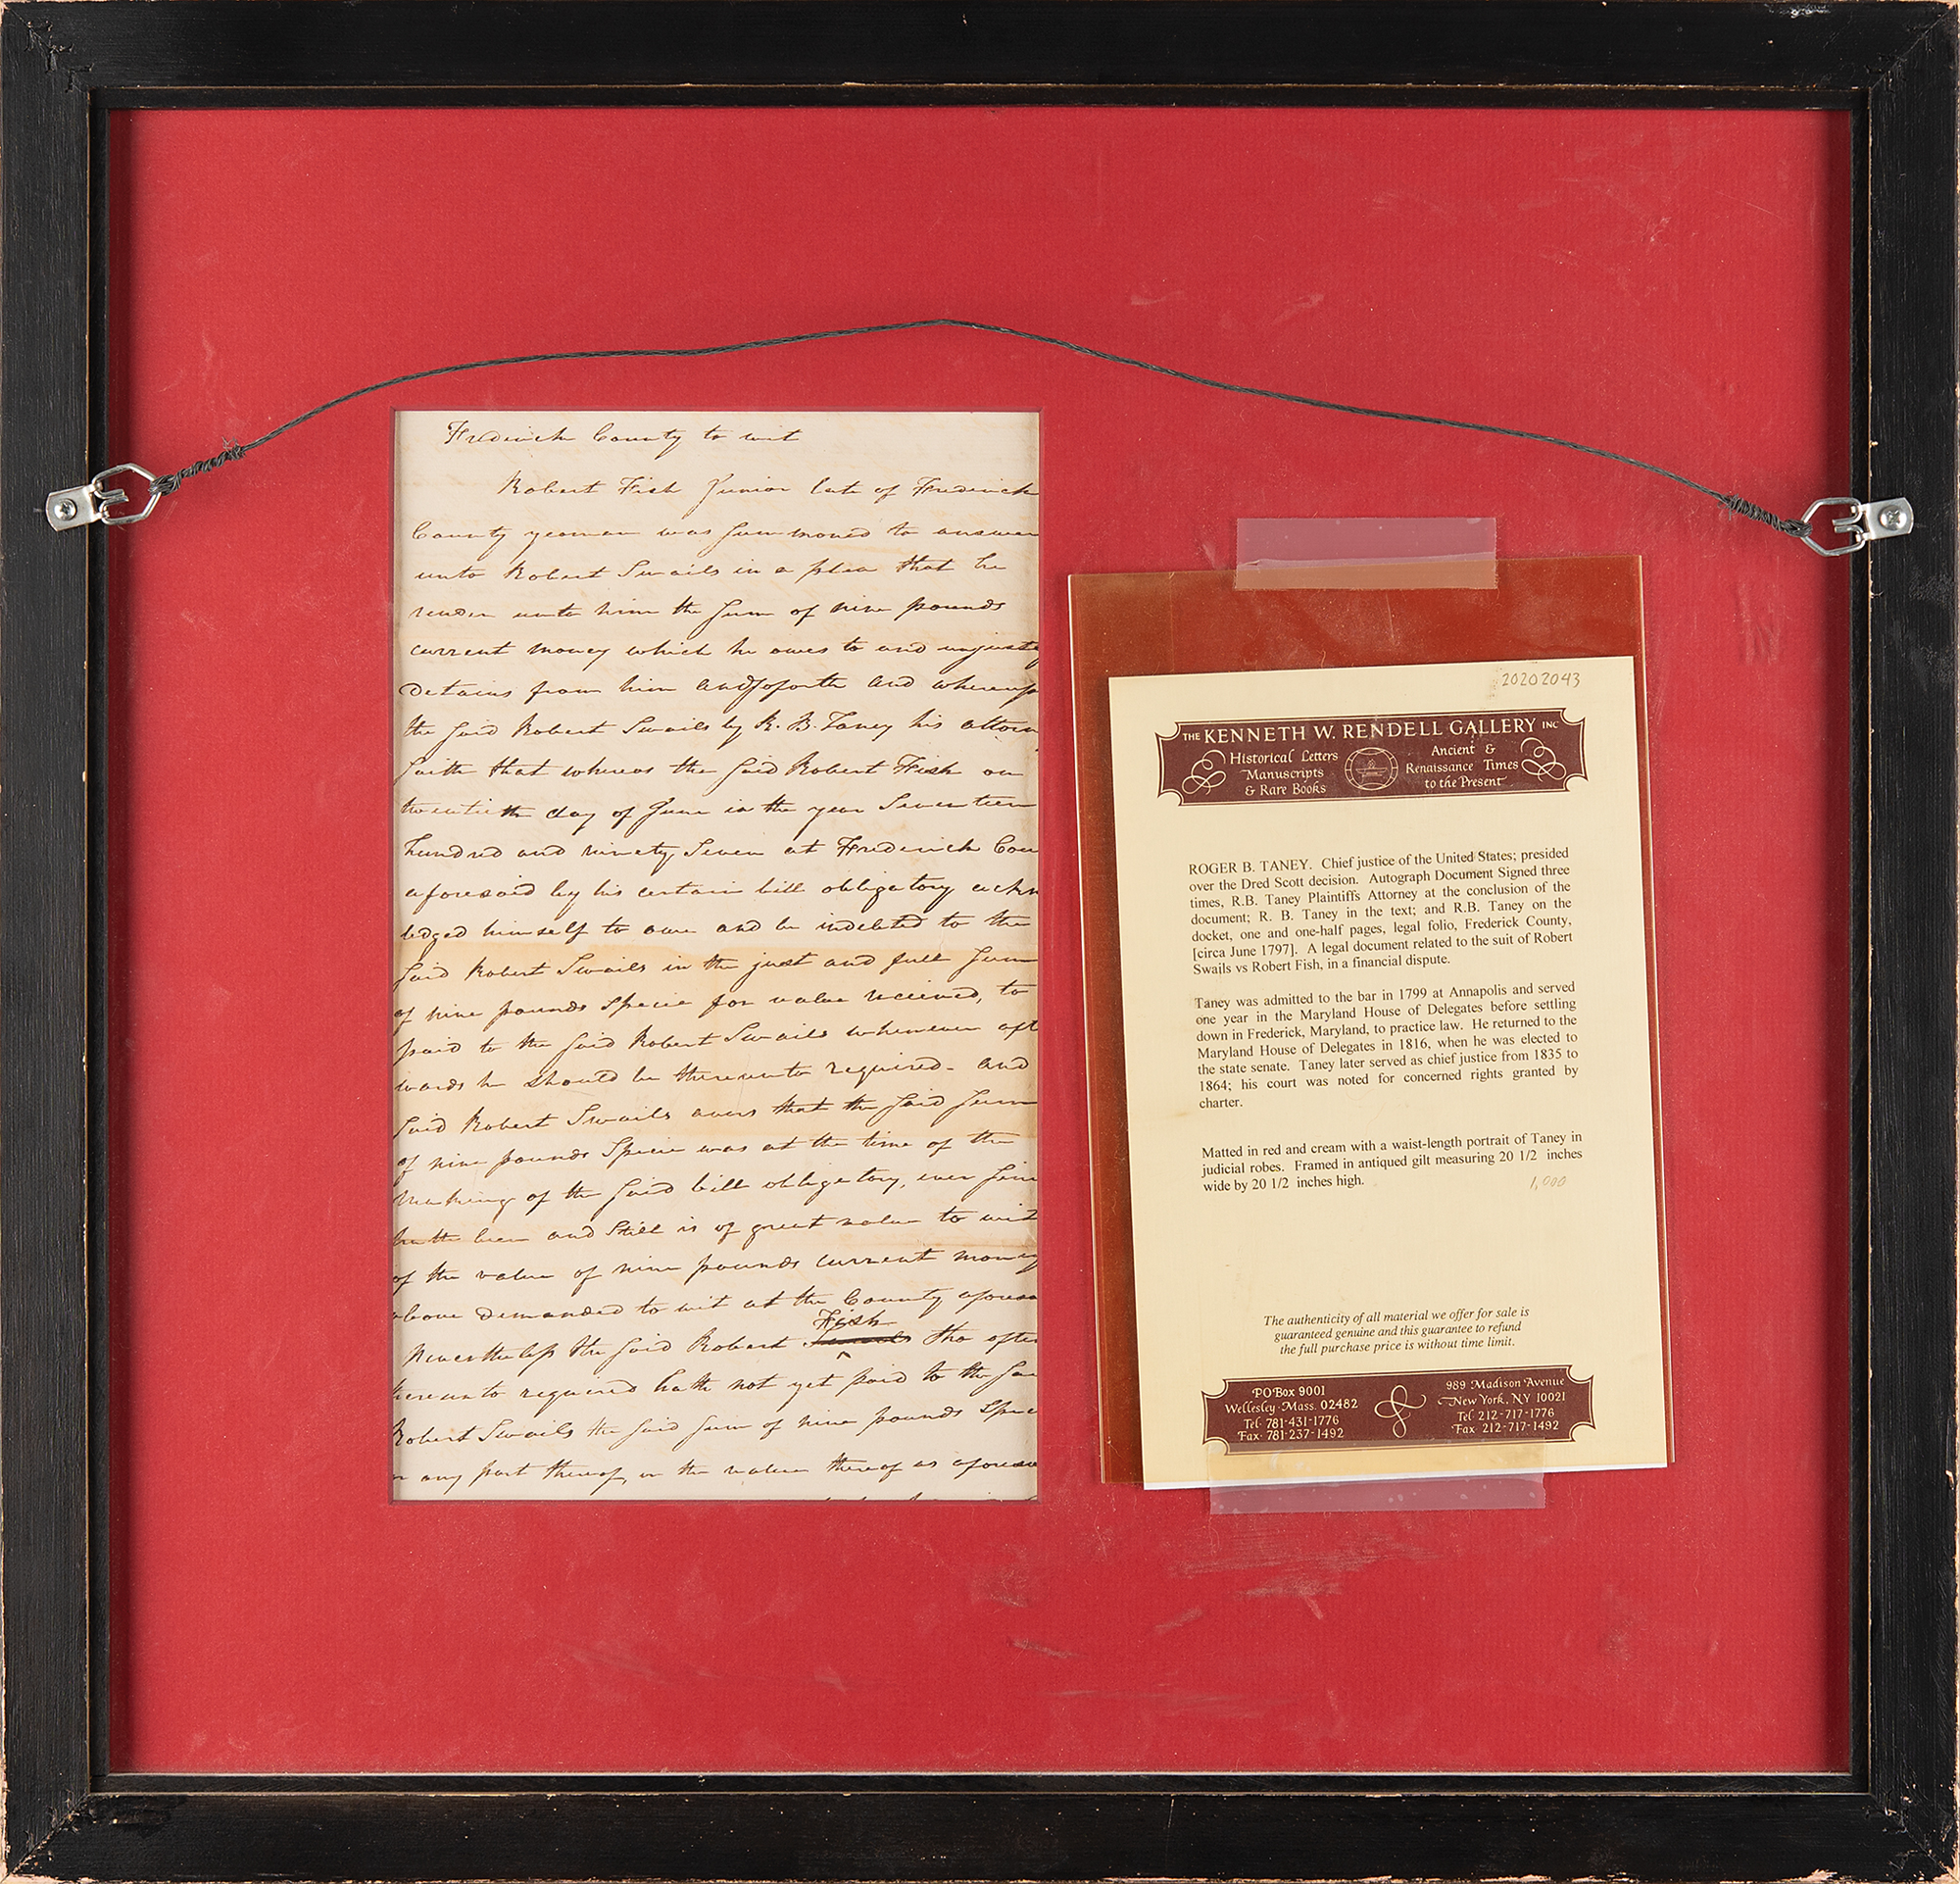 Frederick County to wit
Robert Fish Junior late of Frederick
County yeoman was summoned to answer
unto Robert Swails in a plea that he
render unto him the sum of nine pounds
current money which he owes to and unjustly
detains from him and soforth and whereup
the said Robert Swails by R. B. Taney his attorn
saith that whereas the said Robert Fish on
twentieth day of June in the year Seventeen
hundred and ninety Seven at Frederick Cou
aforesaid by his certain bill obligatory ackn
ledged himself to owe and be indebted to the
said Robert Swails in the just and full sum
of nine pounds specie for value received, to
paid to the said Robert Swails whenever aft
wards he should be thereunto required - and
said Robert Swails avers that the said sum
of nine pounds Specie was at the time of the
making of the said bill obligatory, ever sinc
hath been and still is of great value to wit
of the value of nine pounds current money
above demanded to wit at the County aforesa
Fish
Nevertheless the said Robert tho often
thereunto required hath not yet paid to the sai
Robert Swails the said sum of nine pounds Spec
or any part thereof, or the value thereof as aforesa
20202043
THE KENNETH W. RENDELL GALLERY INC
Historical Letters
Manuscripts
& Rare Books
Ancient &
Renaissance Times
to the Present
ROGER B. TANEY. Chief justice of the United States; presided
over the Dred Scott decision. Autograph Document Signed three
times, R.B. Taney Plaintiffs Attorney at the conclusion of the
document; R. B. Taney in the text; and R.B. Taney on the
docket, one and one-half pages, legal folio, Frederick County,
[circa June 1797]. A legal document related to the suit of Robert
Swails vs Robert Fish, in a financial dispute.
Taney was admitted to the bar in 1799 at Annapolis and served
one year in the Maryland House of Delegates before settling
down in Frederick, Maryland, to practice law. He returned to the
Maryland House of Delegates in 1816, when he was elected to
the state senate. Taney later served as chief justice from 1835 to
1864; his court was noted for concerned rights granted by
charter.
Matted in red and cream with a waist-length portrait of Taney in
judicial robes. Framed in antiqued gilt measuring 20 1/2 inches
wide by 20 1/2 inches high.
1,000
The authenticity of all material we offer for sale is
guaranteed genuine and this guarantee to refund
the full purchase price is without time limit.
PO Box 9001
Wellesley · Mass. 02482
Tel · 781-431-1776
Fax · 781-237-1492
989 Madison Avenue
New York, NY 10021
Tel 212-717-1776
Fax 212-717-1492